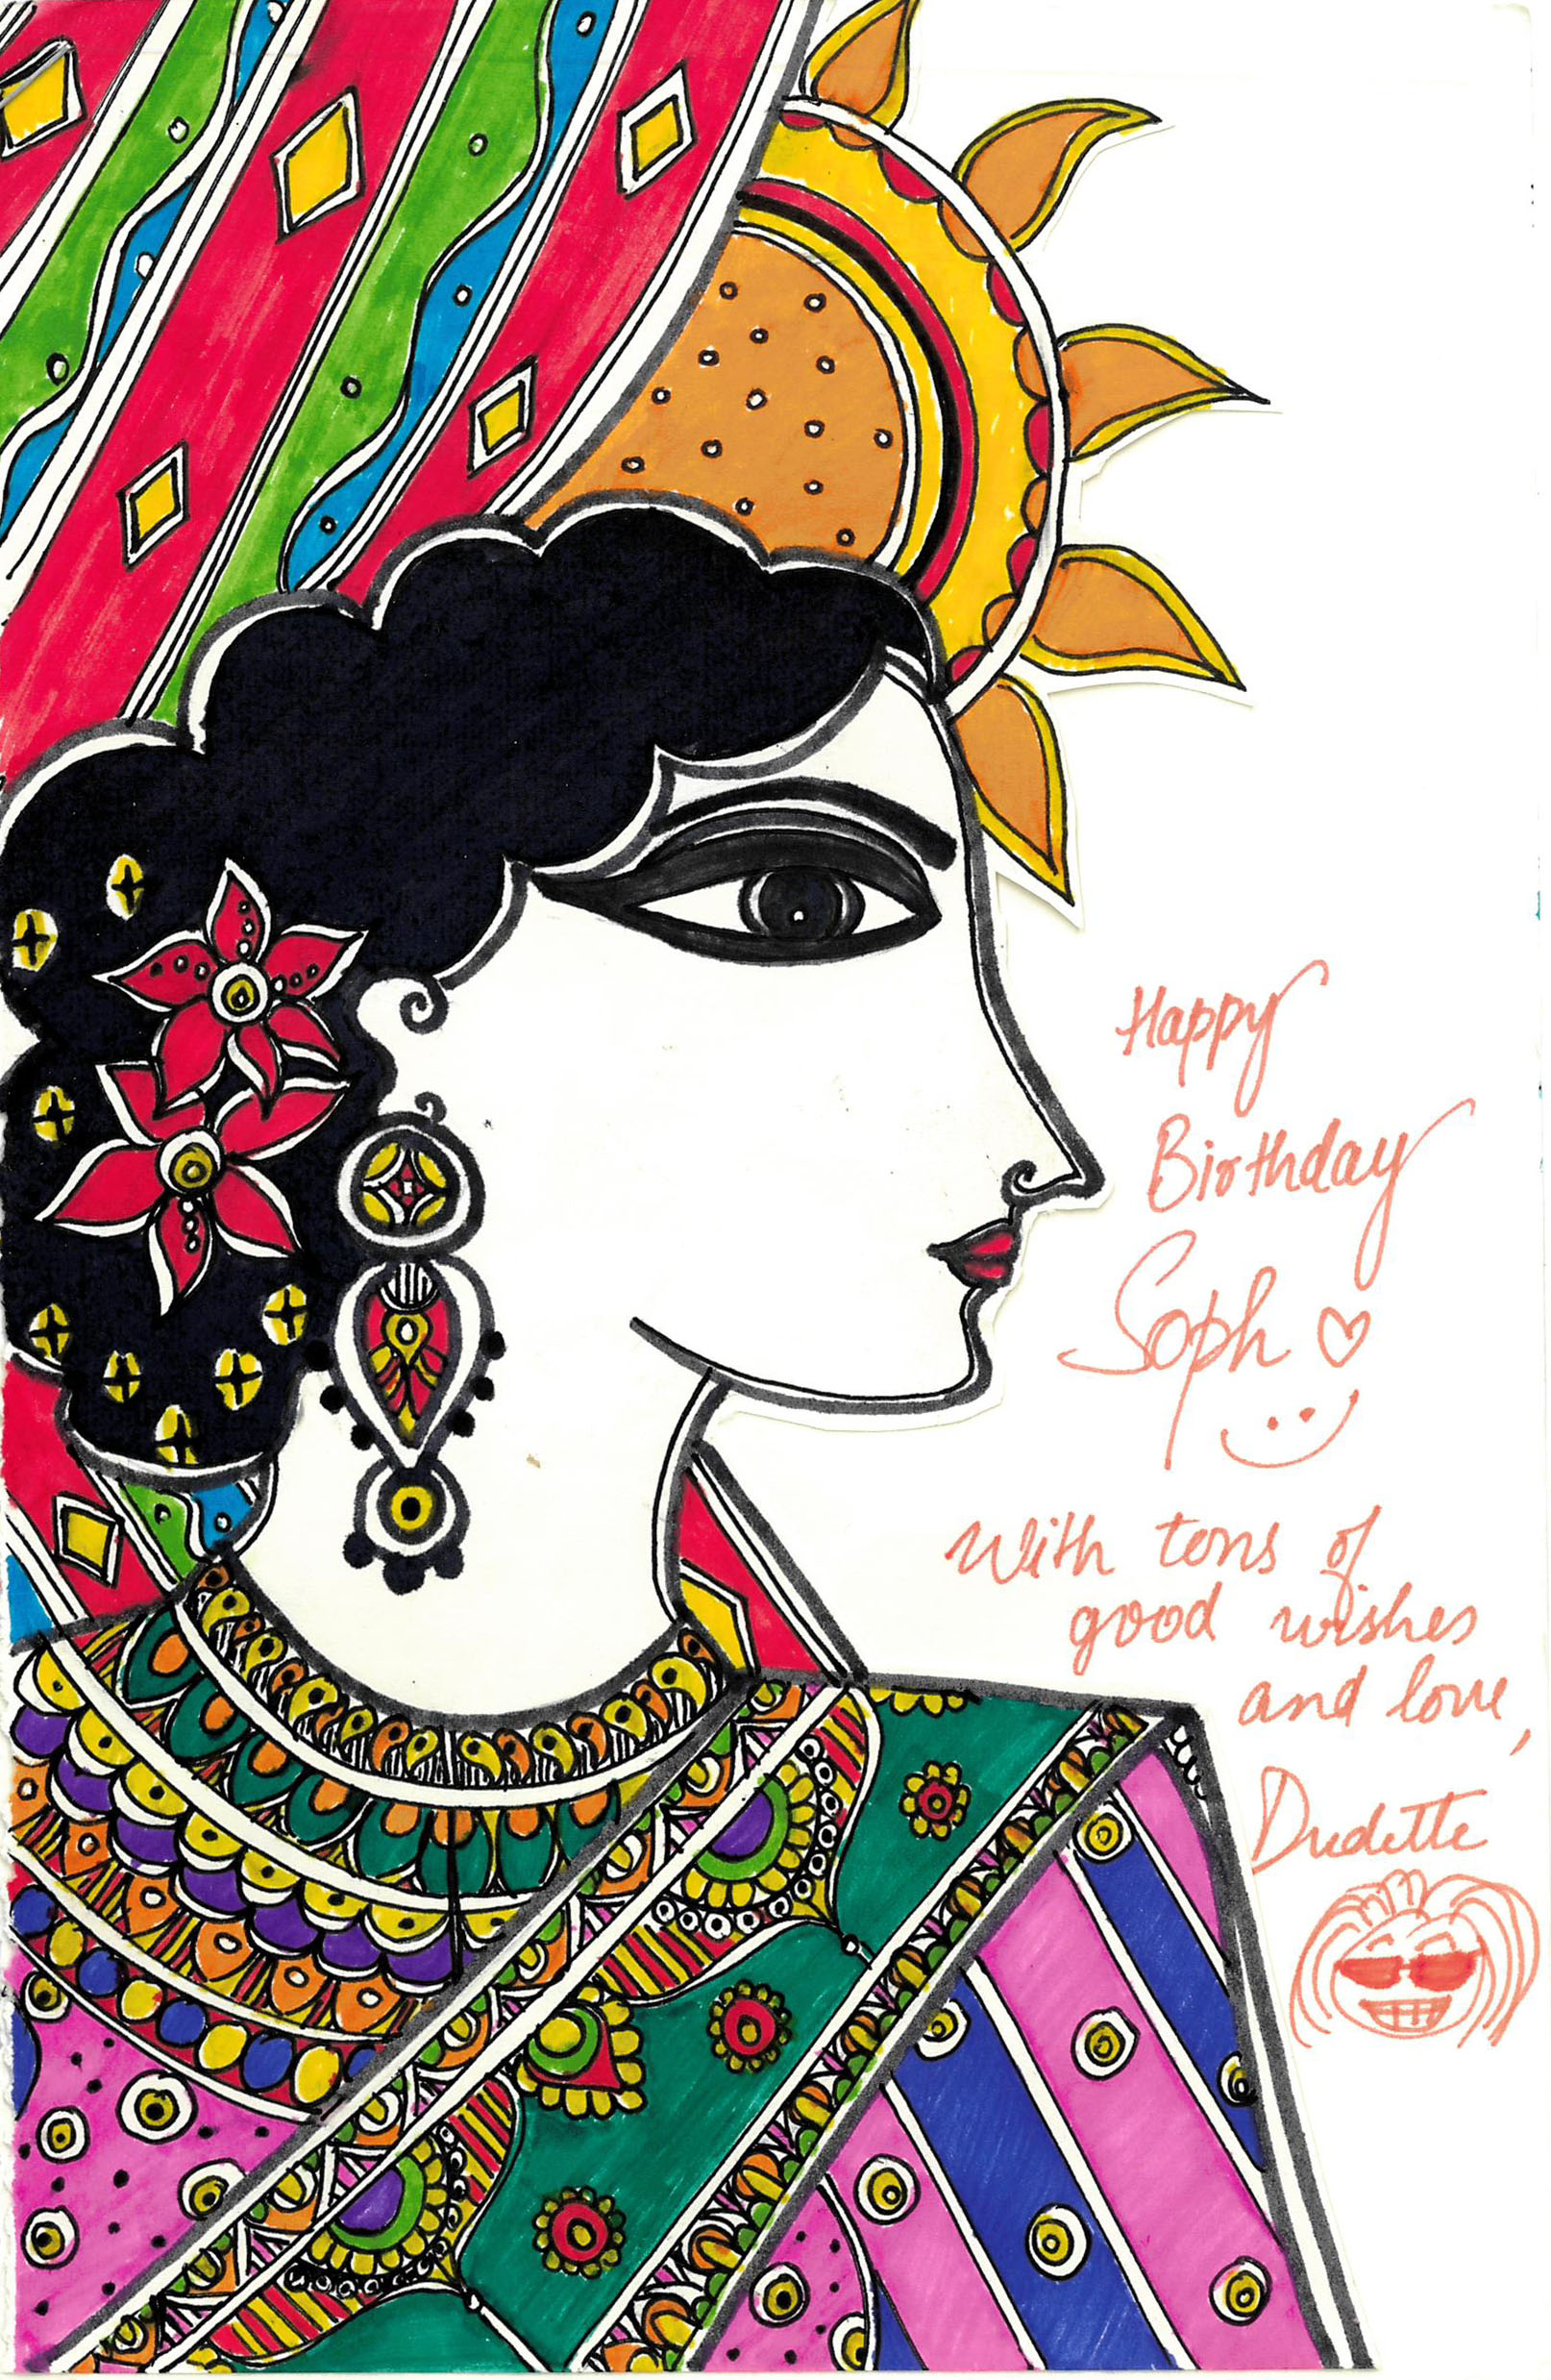 Happy
Birthday
Soph ♡
With tons of
good wishes
and love,
Dudette